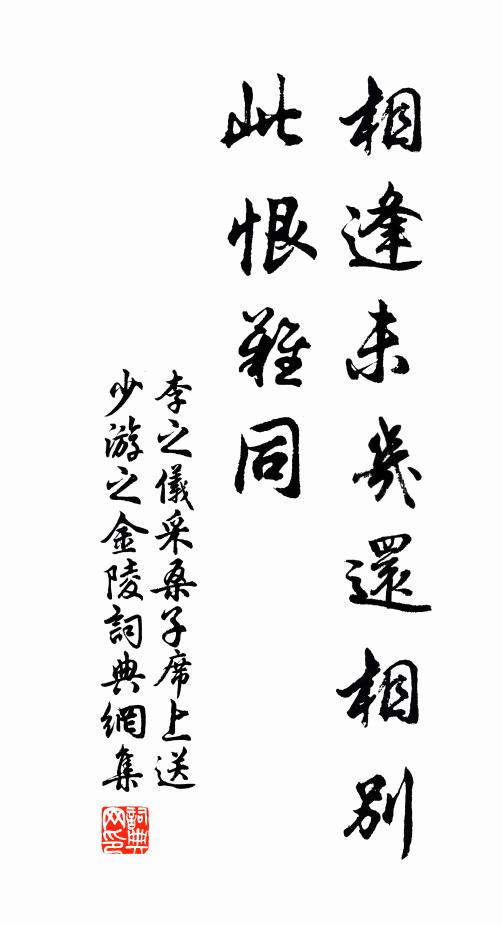 相逢未幾還相別
此恨難同
李之儀采桑子席上送
少游之金陵詞典網集
詞典
网印